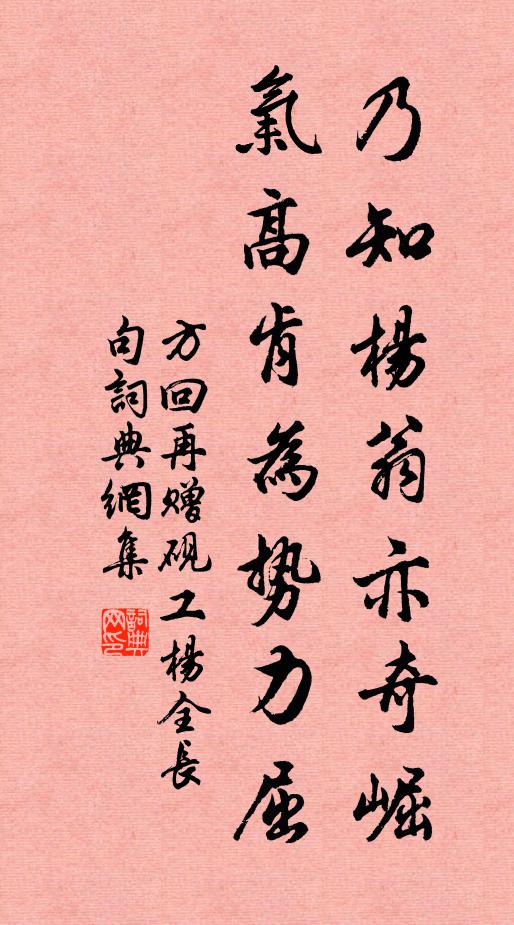 乃知楊翁亦奇崛
氣高肯為势力屈
方回再赠硯工楊全長
句詞典網集
詞典
网印